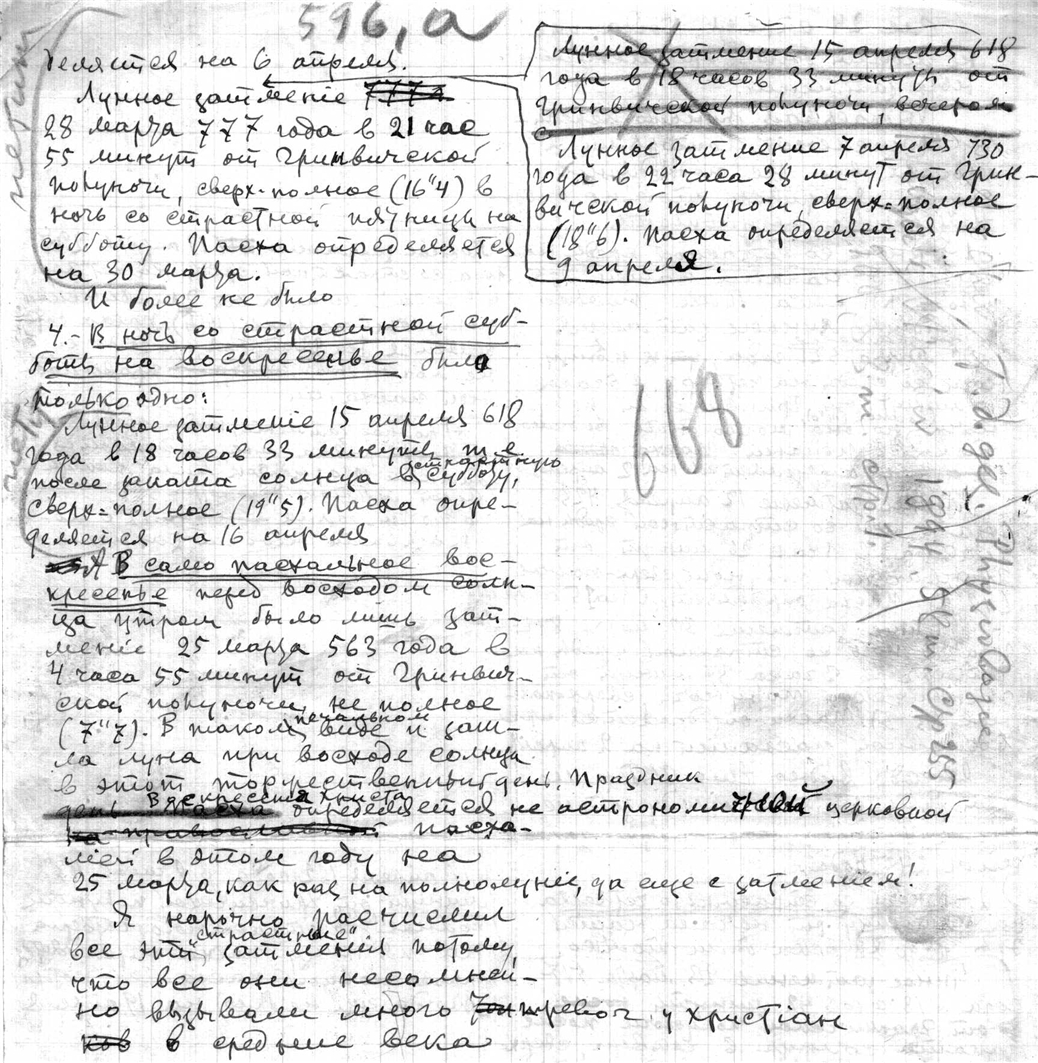 596, а
деляется на 6 апреля.
Лунное затменіе 777
28 марта 777 года в 21 час
55 минут от Гринвической
полуночи, сверх-полное (16"4) в
ночь со страстной пятницы на
субботу. Пасха определяется
на 30 марта.
И более не было
4.- В ночь со страстной суб-
боты на воскресенье было
только одно:
Лунное затменіе 15 апреля 618
года в 18 часов 33 минуты, т. е.
после заката солнца в страстную субботу,
сверх-полное (19"5). Пасха опре-
деляется на 16 апреля
А В само пасхальное вос-
кресенье перед восходом солн-
ца утром было лишь зат-
меніе 25 марта 563 года в
4 часа 55 минут от Гринвич-
ской полуночи, не полное
(7"7). В таком печальном виде и заш-
ла луна при восходе солнца
в этот торжественный день. Праздник
день Воскресения Христа
Пасха определяется не астрономической церковной
на православной пасха-
ліей в этом году на
25 марта, как раз на полнолуніе, да еще с затменіем!
Я нарочно расчислил
все эти "страстные" затмения потому,
что все они несомнен-
но вызывали много тревог у христіан
ков в средние века
Лунное затмение 15 апреля 618
года в 18 часов 33 минуты от
Гринвической полуночи, вечером
с
Лунное затмение 7 апреля 730
года в 22 часа 28 минут от Грин-
вической полуночи, сверх-полное
(18"6). Пасха определяется на
9 апреля.
петит
петит
668
1894
Стр. 255